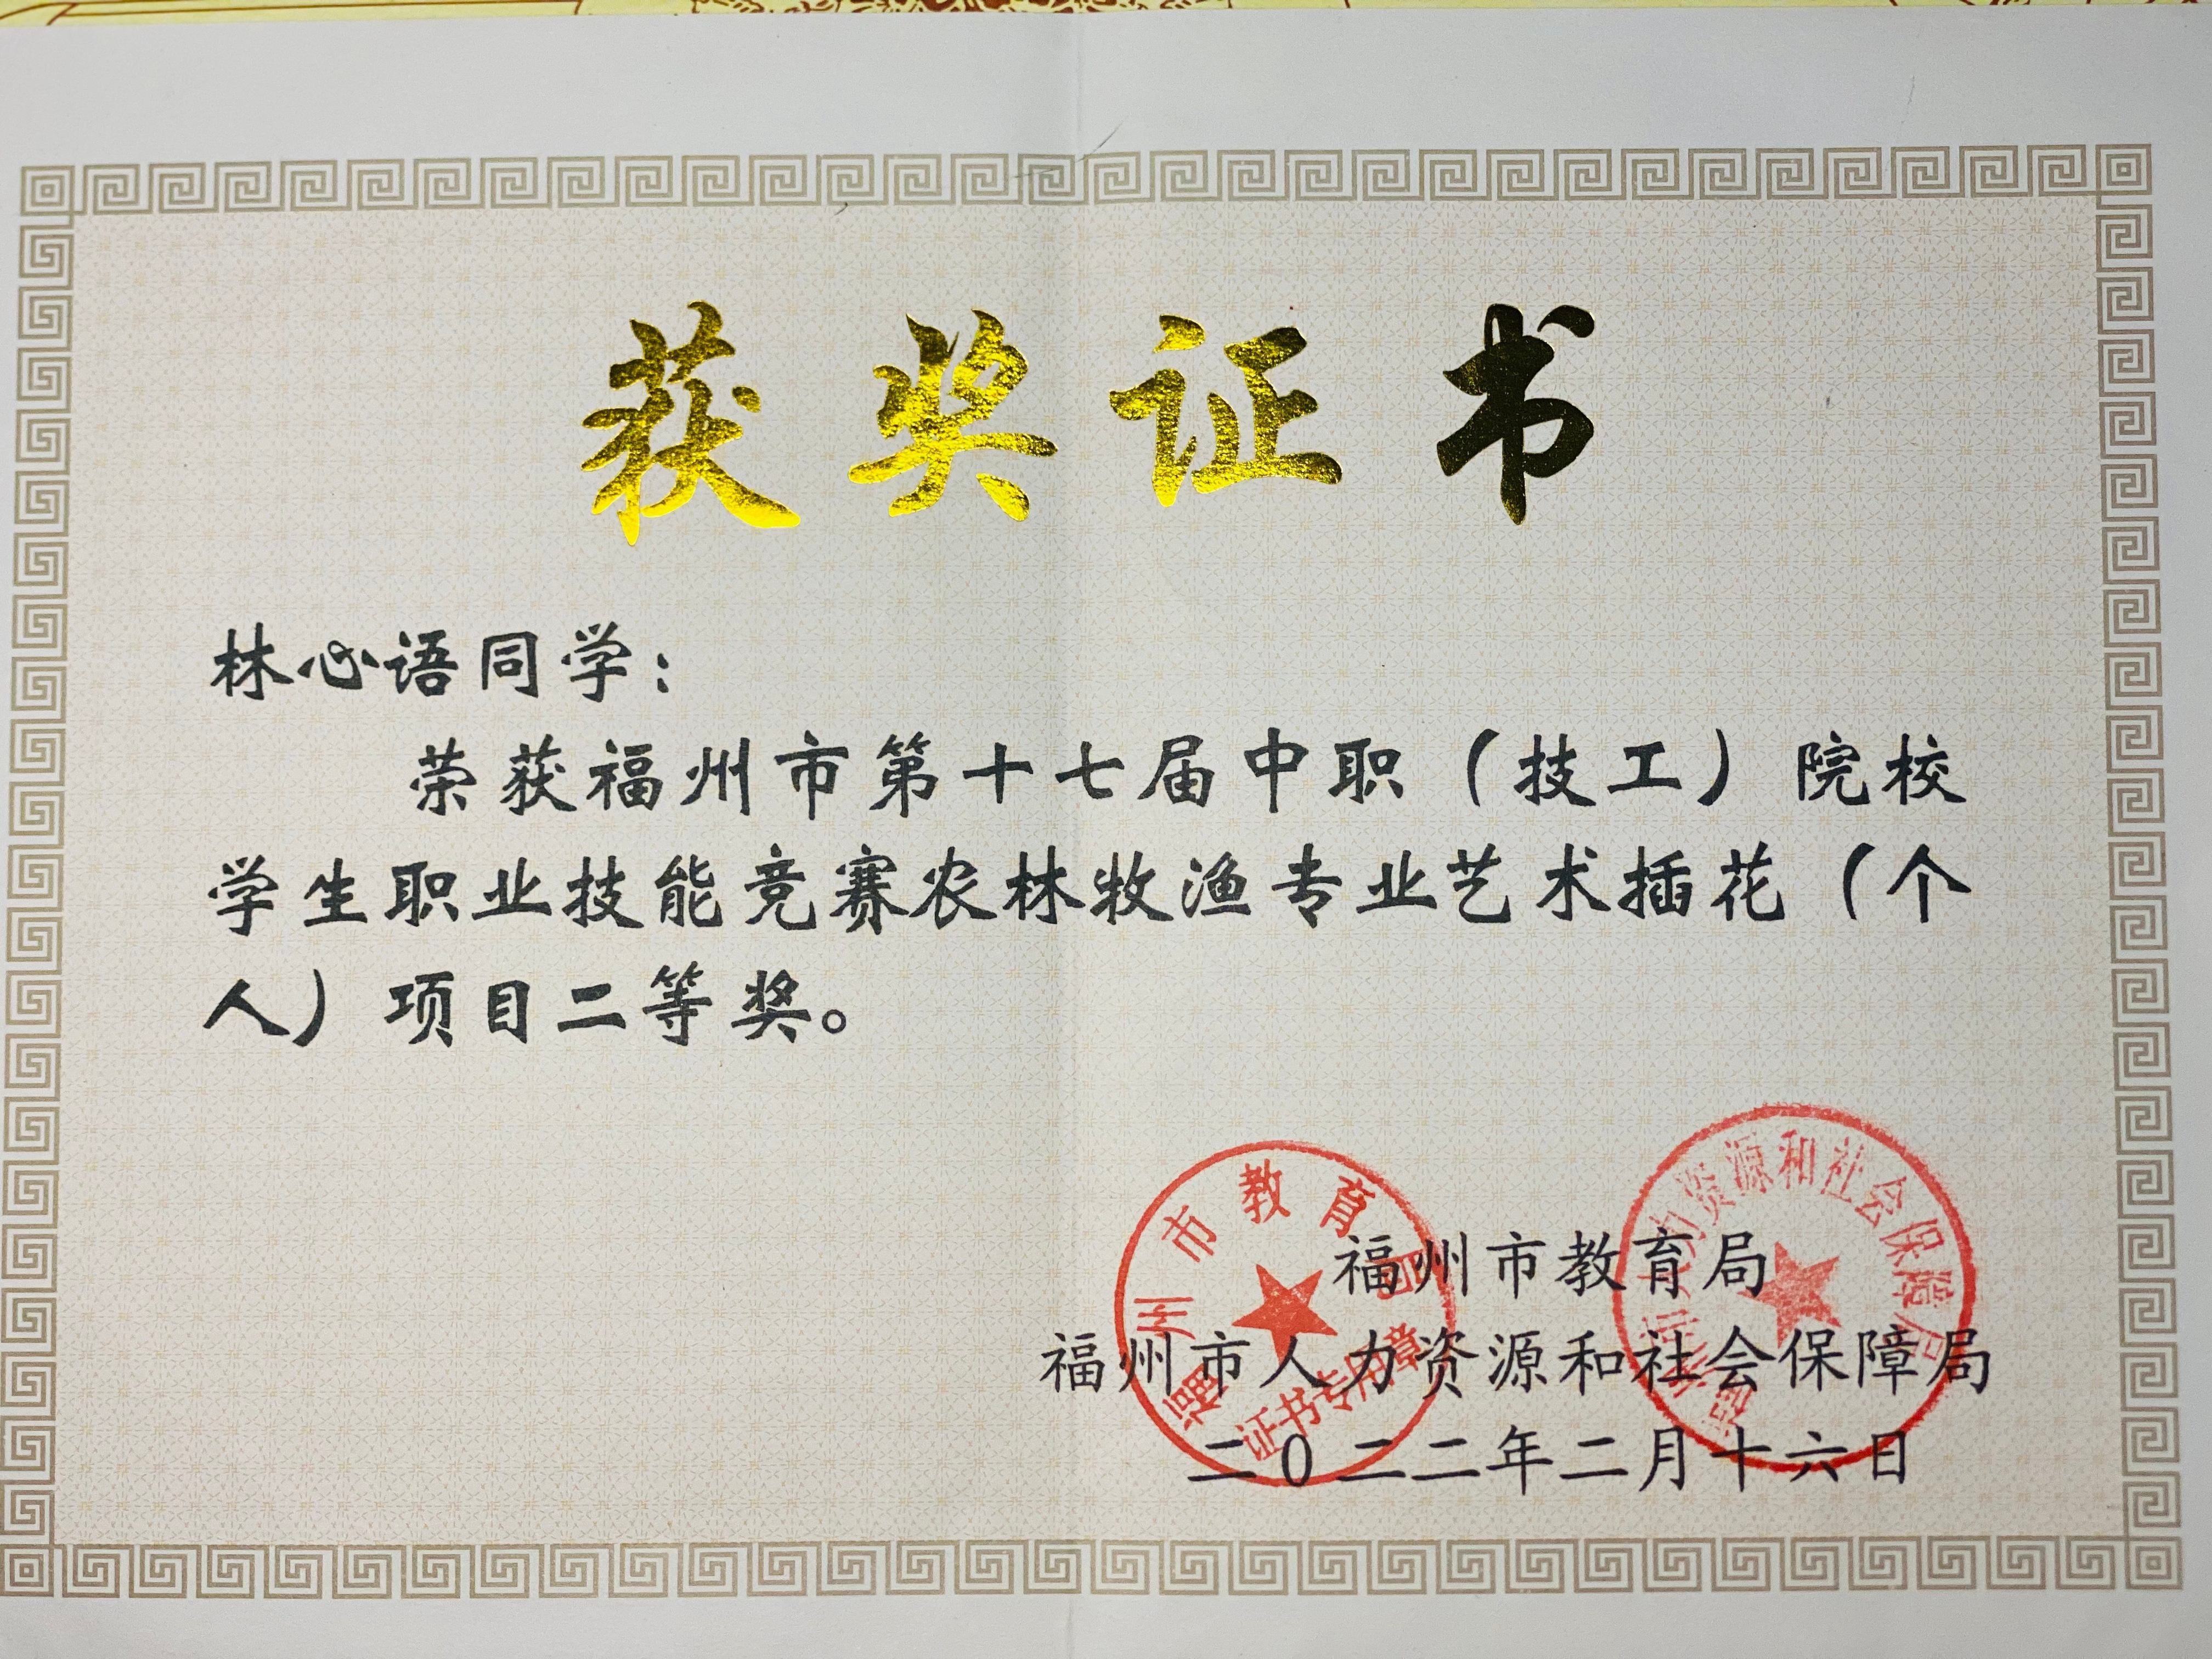 获奖证书
林心语同学：
荣获福州市第十七届中职（技工）院校
学生职业技能竞赛农林牧渔专业艺术插花（个
人）项目二等奖。
福州市教育局
福州市人力资源和社会保障局
二0二二年二月十六日
福州市教育局
证书专用章
福州市人力资源和社会保障局